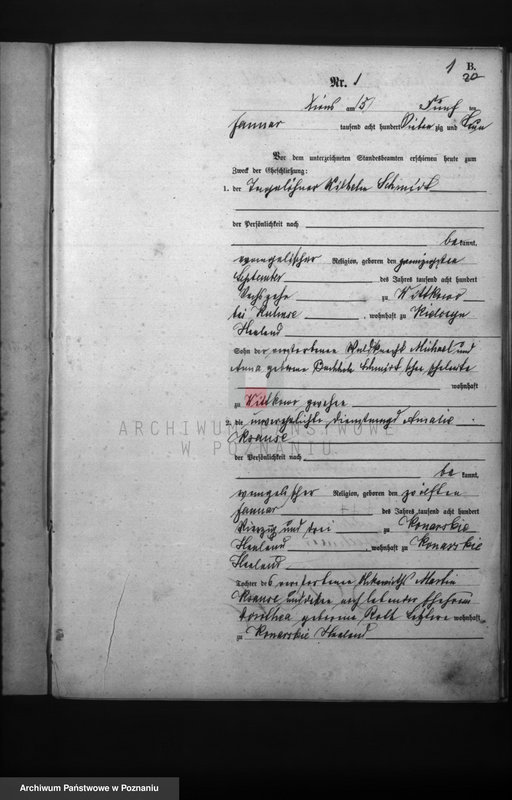 1 B.
20
Nr. 1
Xions am 5 Fünf ten
Januar tausend acht hundert Sieben zig und Neun
Vor dem unterzeichneten Standesbeamten erschienen heute zum
Zweck der Eheschließung:
1. der Tagelöhner Wilhelm Schmidt
der Persönlichkeit nach
be kannt,
evangelischer Religion, geboren den zwanzigsten
September des Jahres tausend acht hundert
zu Wittknow
bei , wohnhaft zu
Hauland
Sohn der verstorbenen Michael und
Anna geborene Schmidt schen Eheleute
wohnhaft
zu Wittknow gewesen
2. die unverehelichte Dienstmagd Amalie
Krause
der Persönlichkeit nach
be kannt,
evangelischer Religion, geboren den zwölften
Januar des Jahres tausend acht hundert
Vierzig und drei zu Konarskie
Hauland , wohnhaft zu Konarskie
Hauland
Tochter des verstorbenen Martin
Krause und dessen noch lebender Ehefrau
Dorothea geborene Letztere wohnhaft
zu Konarskie Hauland
ARCHIWUM PAŃSTWOWE
W POZNANIU
Archiwum Państwowe w Poznaniu